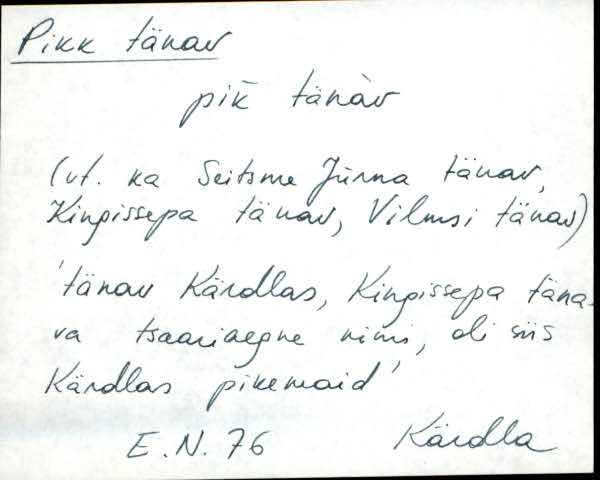 Pikk tänav
pik̄ tänàv
(vt. ka Seitsme Jurna tänav,
Kingissepa tänav, Vilmsi tänav)
'tänav Kärdlas, Kingissepa täna-
va tsaariaegne nimi, oli siis
Kärdlas pikemaid'
E.N. 76 Kärdla